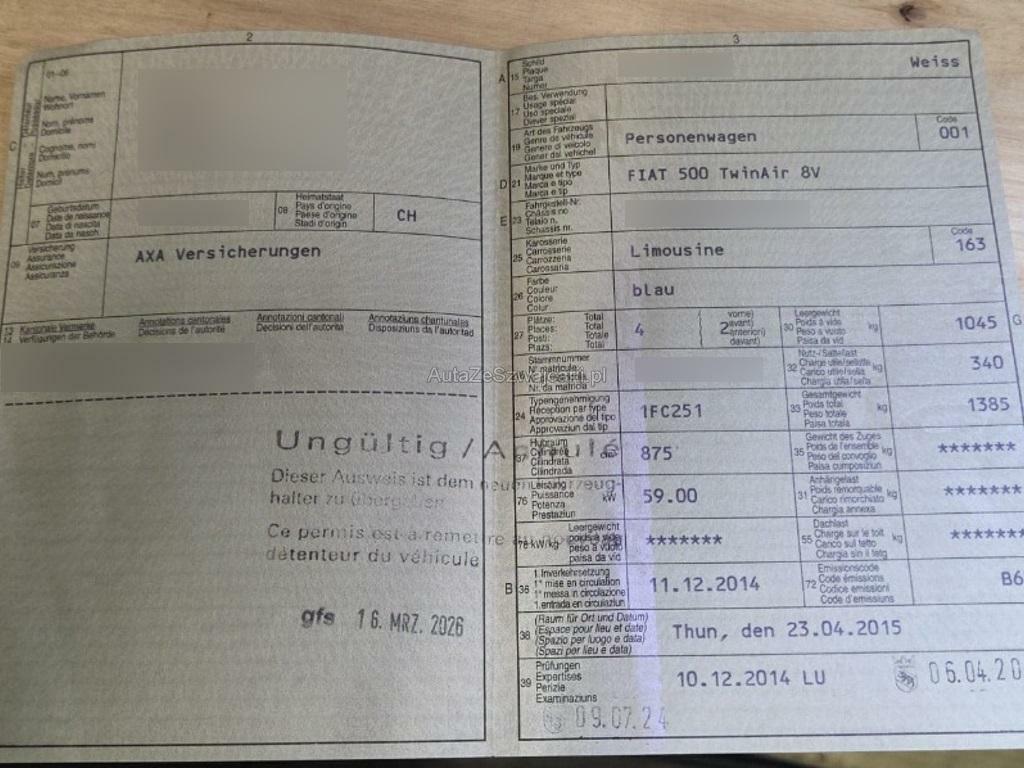 2
01-06
Name, Vornamen
Wohnort
Nom, prénoms
Domicile
Cognome, nomi
Domicilio
Num, prenums
Domicil
C
07
Geburtsdatum
Date de naissance
Data di nascita
Data da nasch.
08
Heimatstaat
Pays d'origine
Paese d'origine
Stadi d'origin
CH
09
Versicherung
Assurance
Assicurazione
Assicuranza
AXA Versicherungen
Kantonale Vermerke
Verfügungen der Behörde
Annotations cantonales
Décisions de l'autorité
Annotazioni cantonali
Decisioni dell'autorità
Annotaziuns chantunalas
Disposiziuns da l'autoritad
Ungültig / Annulé
Dieser Ausweis ist dem neuen Fahrzeug-
halter zu übergeben
Ce permis est à remettre au nouveau
détenteur du véhicule
gfs 16. MRZ. 2026
3
A 15
Schild
Plaque
Targa
Numer
Weiss
17
Bes. Verwendung
Usage spécial
Uso speciale
Diever spezial
19
Art des Fahrzeugs
Genre de véhicule
Genere di veicolo
Gener dal vehichel
Personenwagen
Code
001
D 21
Marke und Typ
Marque et type
Marca e tipo
Marca e tip
FIAT 500 TwinAir 8V
E 23
Fahrgestell-Nr.
Châssis no
Telaio n.
Schassis nr.
25
Karosserie
Carrosserie
Carrozzeria
Carossaria
Limousine
Code
163
26
Farbe
Couleur
Colore
Colur
blau
27
Plätze: Total
Places: Total
Posti: Totale
Plazs: Total
4
2
vorne)
avant)
anteriori)
davant)
30
Leergewicht
Poids à vide
Peso a vuoto
Paisa da vid
kg
1045
G
Stammnummer
N° matricule
Nr. da matricla
32
Nutz-/Sattellast
Charge utile/sellette
Carico utile/sella
Chargia utila/sella
kg
340
24
Typengenehmigung
Réception par type
Approvazione del tipo
Approvaziun dal tip
1FC251
33
Gesamtgewicht
Poids total
Peso totale
Paisa totala
kg
1385
37
Hubraum
Cylindrée
Cilindrata
Cilindrada
875
35
Gewicht des Zuges
Poids de l'ensemble
Peso del convoglio
Paisa cumposiziun
kg
*******
76
Leistung
Puissance
Potenza
Prestaziun
kW
59.00
31
Anhängelast
Poids remorquable
Carico rimorchiato
Chargia annexa
kg
*******
78 kW/kg
Leergewicht
poids à vide
peso a vuoto
paisa da vid
*******
55
Dachlast
Charge sur le toit
Carico sul tetto
Chargia sin il tetg
kg
*******
B 36
1. Inverkehrsetzung
1re mise en circulation
1a messa in circolazione
1. entrada en circulaziun
11.12.2014
72
Emissionscode
Code émissions
Codice emissioni
Code d'emissiuns
B6
38
(Raum für Ort und Datum)
(Espace pour lieu et date)
(Spazio per luogo e data)
(Spazi per lieu e data)
Thun, den 23.04.2015
39
Prüfungen
Expertises
Perizie
Examinaziuns
10.12.2014 LU
06.04.20
09.07.24
AutaZeSzwajcarii.pl